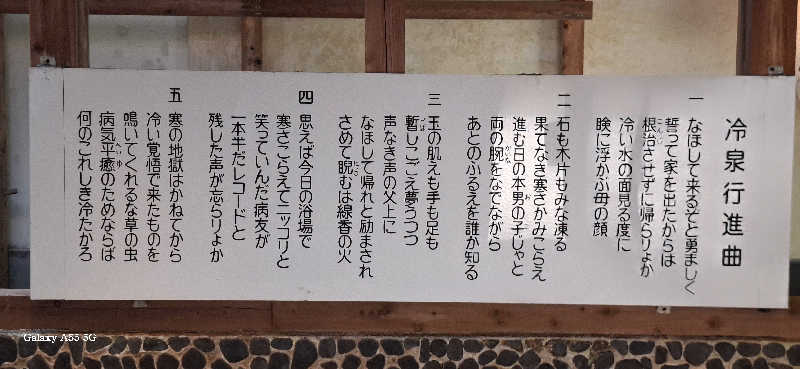 冷泉行進曲
一
なほして来るぞと勇ましく
誓って家を出たからは
根治させずに帰らりょか
冷い水の面見る度に
瞼に浮かぶ母の顔
二
石も木片もみな凍る
果てなき寒さかみこらえ
進む日の本男の子じゃと
両の腕をなでながら
あとのふるえを誰か知る
三
玉の肌えも手も足も
暫しこごえ夢うつつ
声なき声の父上に
なほして帰れと励まされ
さめて睨むは線香の火
四
思えば今日の浴場で
寒さこらえてニッコリと
笑っていんだ病友が
一本半だレコードと
残した声が忘らりょか
五
寒の地獄はかねてから
冷い覚悟で来たものを
鳴いてくれるな草の虫
病気平癒のためならば
何のこれしき冷たかろ
Galaxy A55 5G